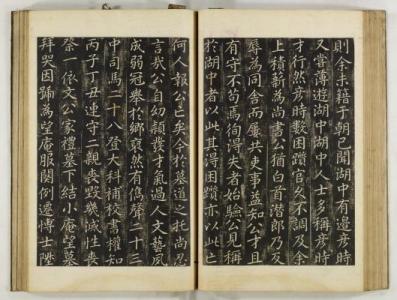 則余未籍于朝已聞湖中有邊彦時
又嘗薄遊湖中湖中人士多稱彦時
才行然彦時數困躓官久不調及余
上積薪為尚書公猶白首潛郎乃反
辱為同舎而屢共吏事益知公才且
有守不苟為徇得失者始驗公見稱
於湖中者以此其淂困躓亦以此亡
何人報公亡矣今於墓道之托尚忍
言哉公自幼穎發才氣過人文藝夙
成弱冠舉於鄉裒然有雋聲二十三
中司馬二十八登大科補校書權知
丙子丁丑連守二親喪毀幾滅性喪
祭一依文公家禮墓下結小庵望墓
拜哭因號為望庵服闋例遷博士陞